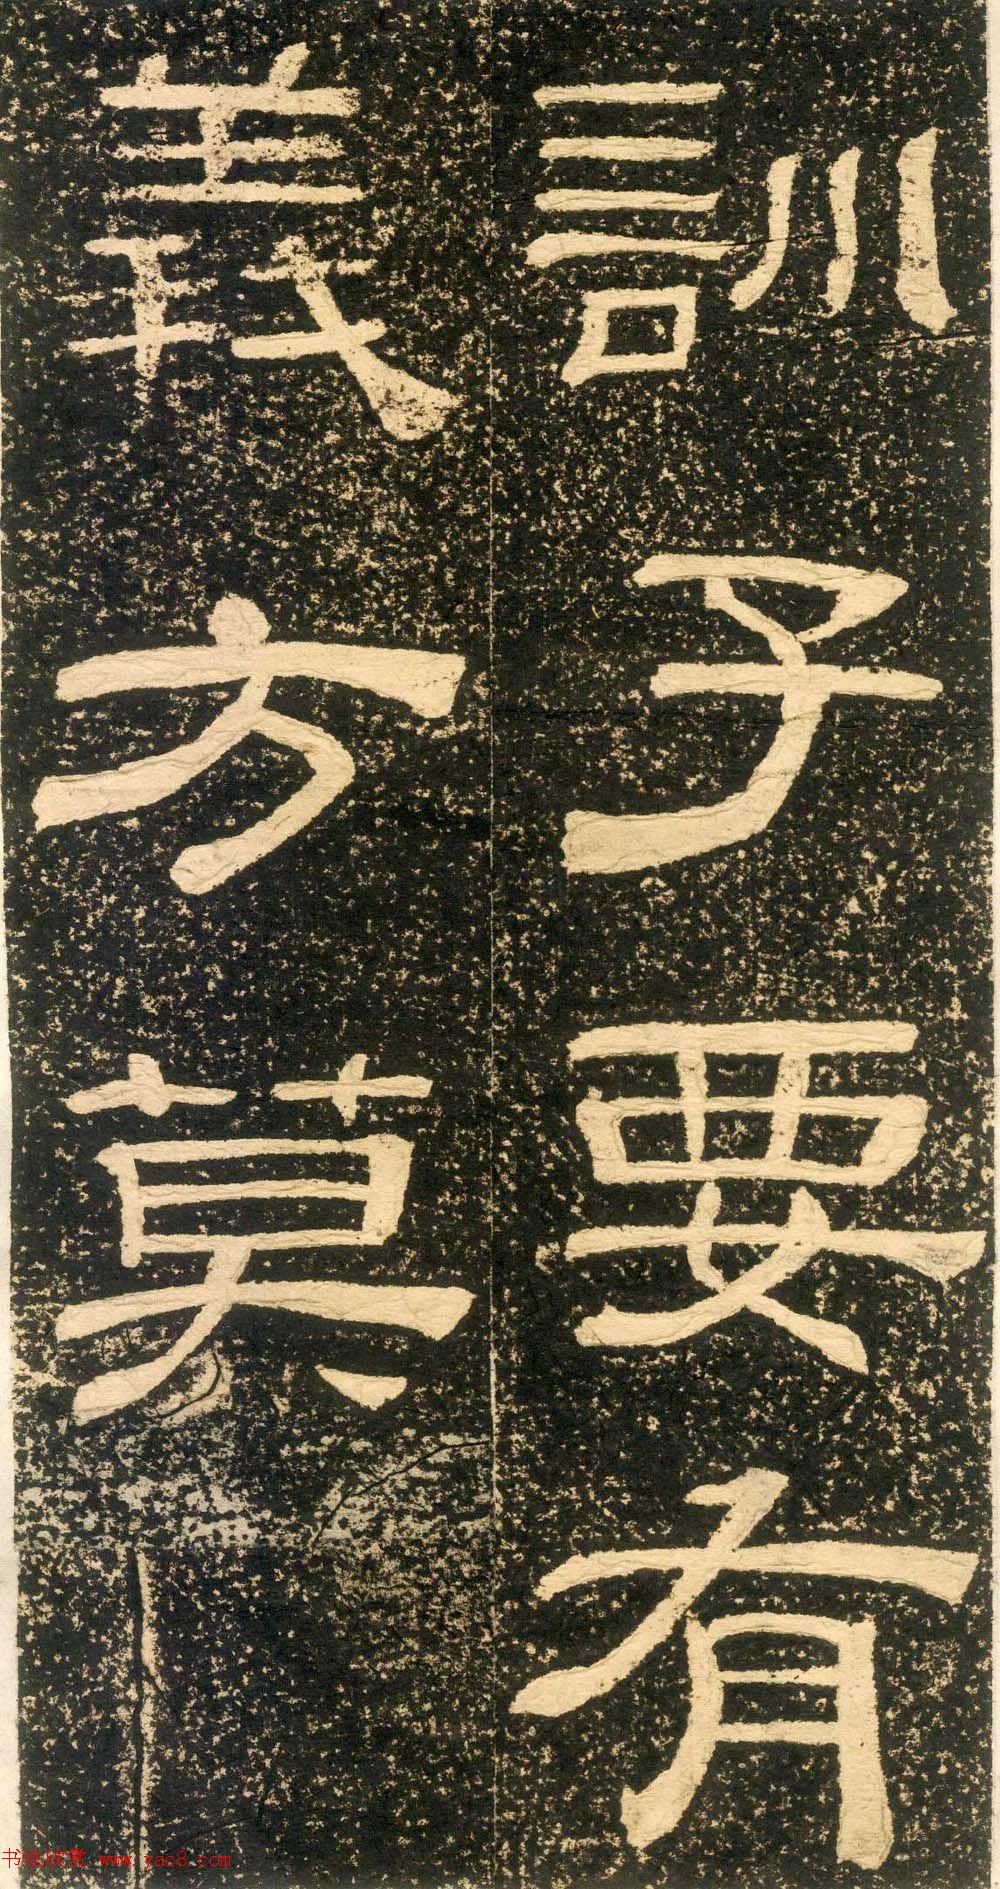 訓子要有
義方莫
书法欣赏 www.yac8.com